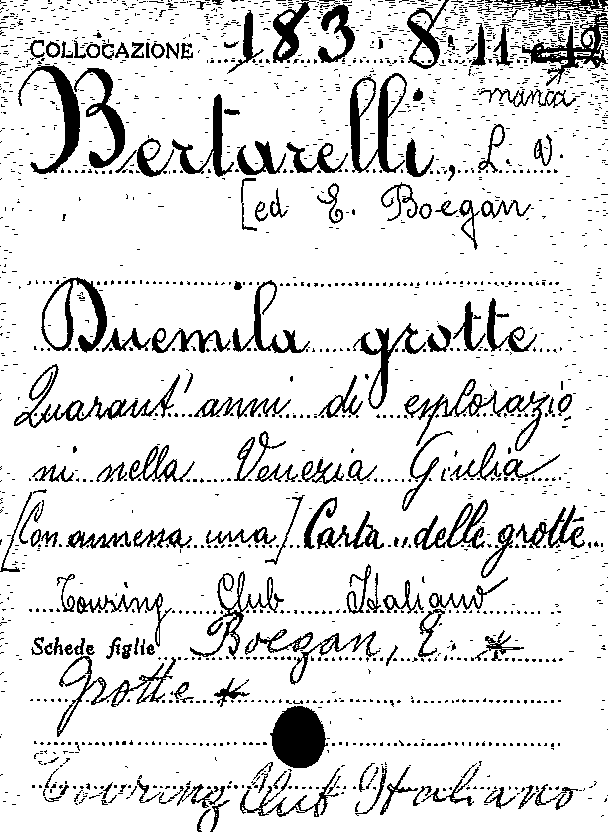 COLLOCAZIONE 183. 8. 11 e 12
manca
Bertarelli, L. V.
[ed E. Boegan
Duemila grotte
Quarant'anni di esplorazio
ni nella Venezia Giulia
[Con annessa una] Carta "delle grotte"
Touring Club Italiano
Schede figlie Boegan, E. *
Grotte *
Touring Club Italiano